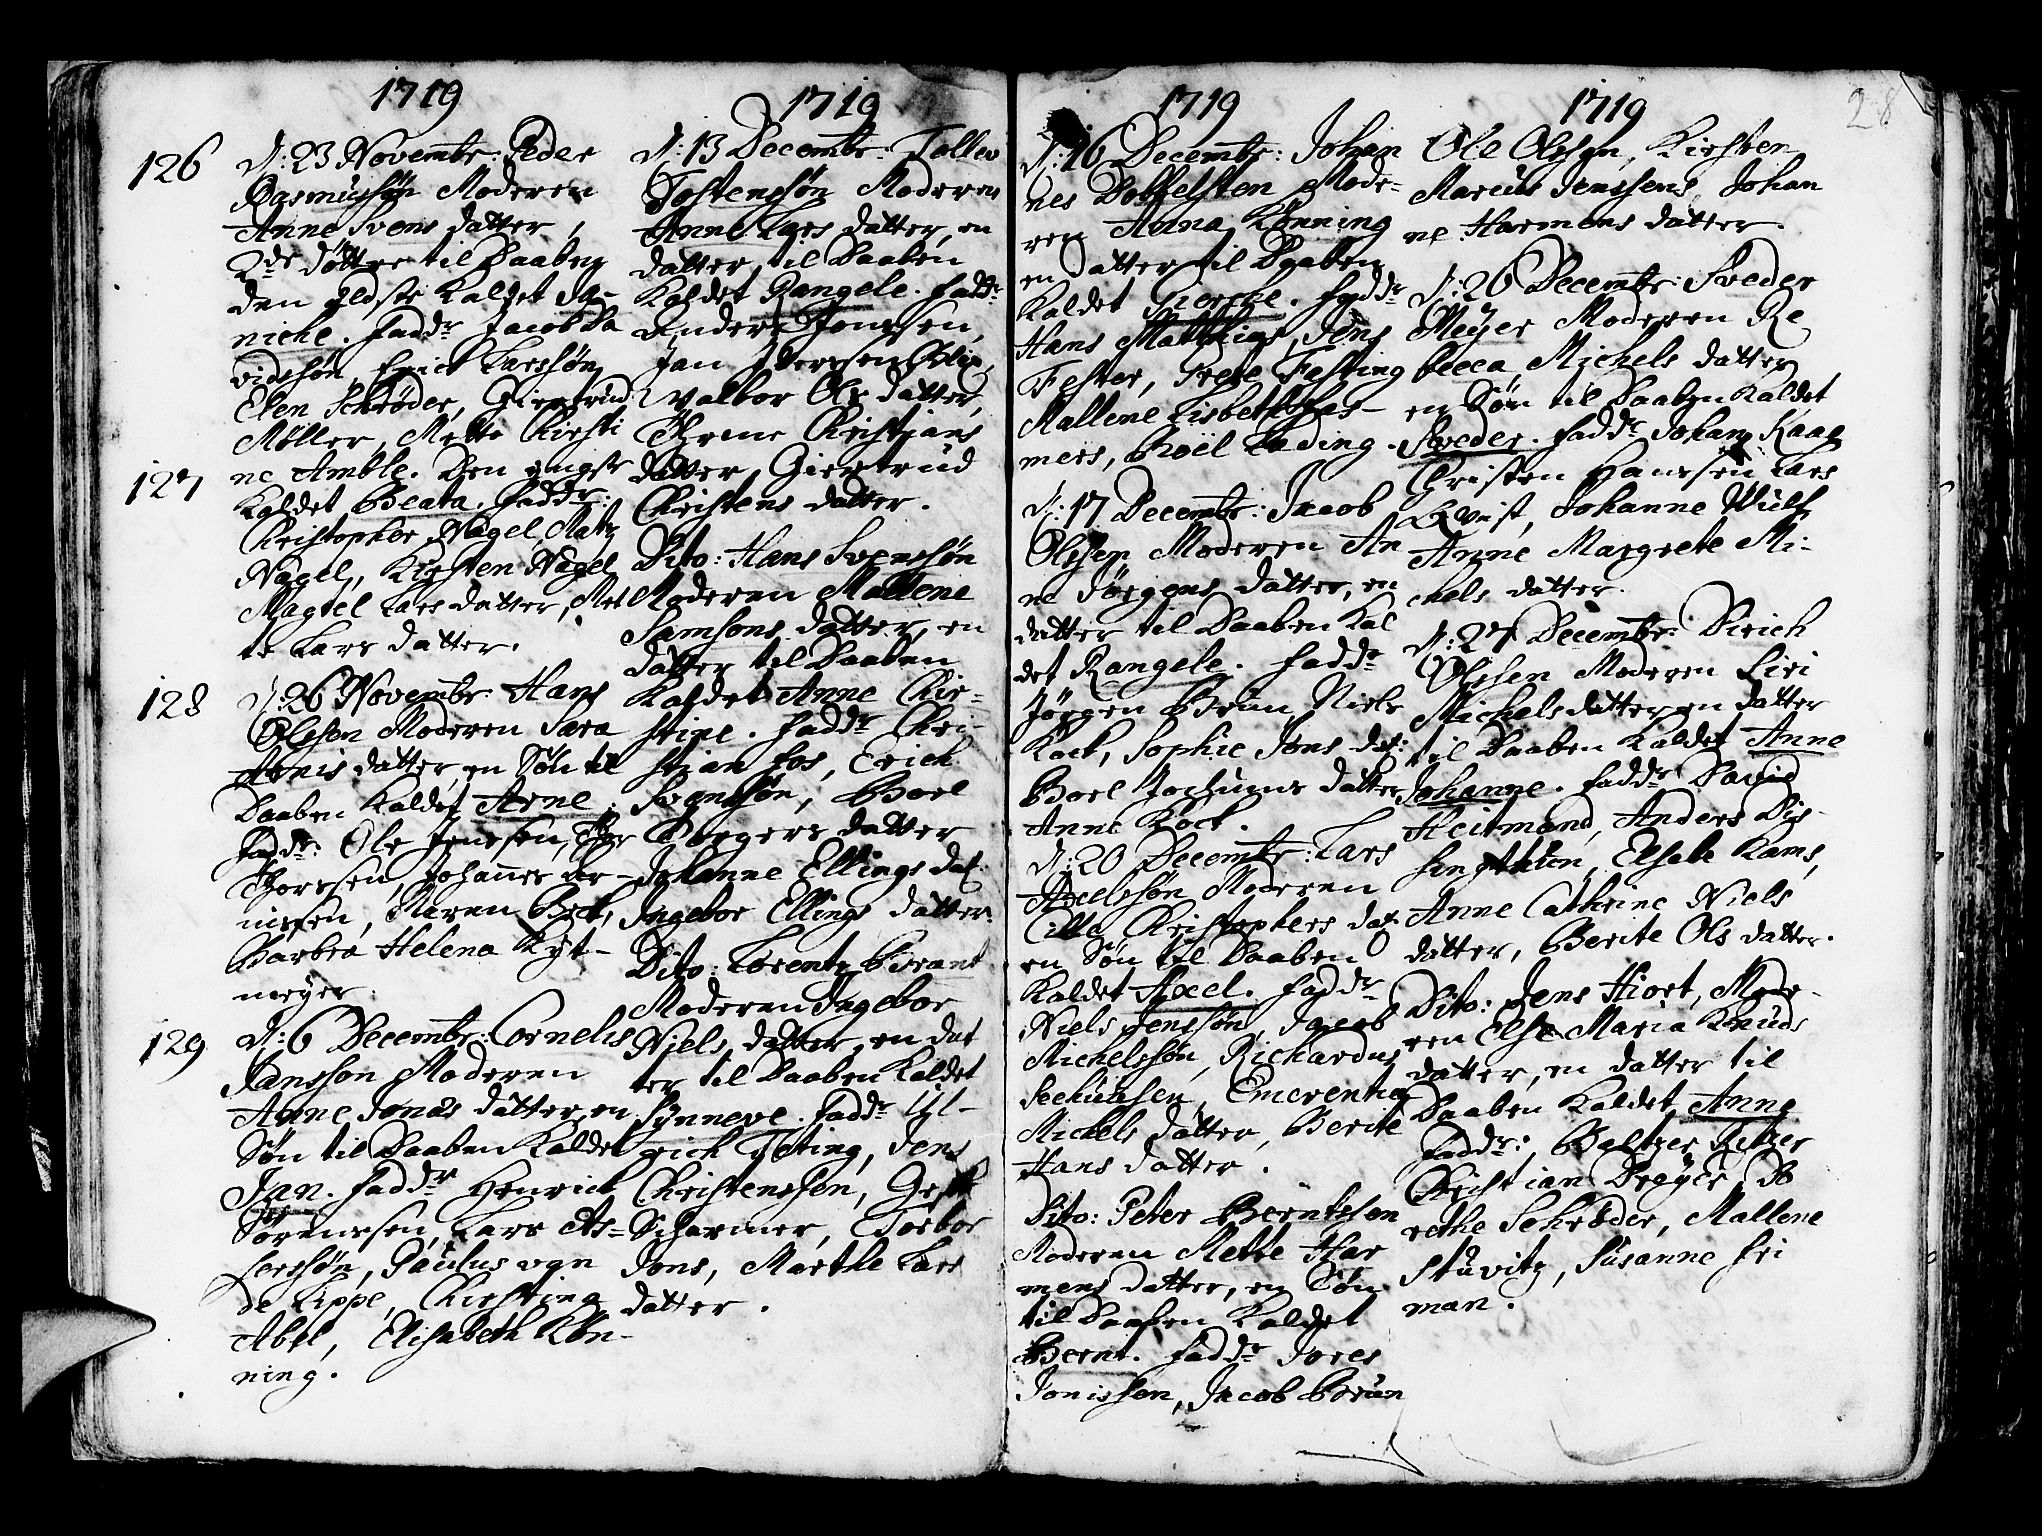 1719
126
d: 23 Novembr: Peder
Rasmussøn Moderen
Anne Svens datter,
2de døttre til Daaben
den eldste kaldet
niche. Fadd:r Jacob Da
vidssøn, Erich Larssøn
Elen Schrøder, Giertrud
Møller, Mette Kirsti
127
ne Amble. Den yngste
kaldet Beata. Fadd:r:
Christopher Nagel, Matz
Nagel, Kirsten Nagel
Magrel Lars datter, Met
te Lars datter.
128
d: 26 Novembr: Hans
Olssen Moderen Sara
Arnis datter, en Søn til
Daaben kaldet Arne.
Fadd:r: Ole Jenssen,
Thorssen, Johannes Ar-
nissen, Karen Beck,
Barbra Helena Kyt-
meyer.
129
d: 6 Decembr: Cornelis
Jansson Moderen
Anne Jonas datter, en
Søn til Daaben kaldet
Jan. Fadd:r Henrich
Sørenssen, Lars As-
lerssøn, Paulus van
de Lippe, Chirsting
Abel, Elisabeth Køn-
ning.
1719
d: 13 Decembr: Tollev
Tostenssøn Moderen
Anne Lars datter, en
datter til Daaben
kaldet Rangele. Fadd:r
Anders Jonssen,
Jan Iverssen
Valbor Ols datter,
Christians
datter, Giertrud
Christens datter.
Dito: Hans Svenssøn
Moderen Mallene
Samsons datter, en
datter til Daaben
kaldet Anne Chir-
stine. Fadd:r Chri-
stian Fos, Erich
Svenssøn, Boel
Borgers datter
Johanne Ellings dat:
Ingebor Ellings datter.
Dito: Lorentz Brant
Moderen Ingebor
Niels datter, en dat
ter til Daaben kaldet
Synneve. Fadd:r Ul-
rich Fyting, Jens
Christenssøn, Gesk
Scharmer, Torbor
Jons, Marthe Lars
datter.
1719
d: 16 Decembr: Johan
nes Mode-
ren Anna Kønning
en datter til Daaben
kaldet Giertke. Fadd:r
Hans Matthias, Jens
Fester, Grete Festing
Mallene Lisbeth Has-
mers, Boël Lading.
d: 17 Decembr: Jacob
Olssen Moderen An
ne Jørgens datter, en
datter til Daaben kal
det Rangele. Fadd:r
Jørgen Bruun, Niels
Kock, Sophie Jons dat:
Boel Jochums datter,
Anne Kock.
d: 20 Decembr: Lars
Axelssøn Moderen
Cille Christophers dat:
en Søn til Daaben
kaldet Axel. Fadd:r
Niels Jenssøn, Jacob
Michelssøn, Richardus
Seehuusen, Emerentia
Michels datter, Berite
Hans datter.
Dito: Peter Berntsson
Moderen Mette Har
mens datter, en Søn
til Daaben kaldet
Bernt. Fadd:r Jores
Jonissen, Jacob Bruun
1719
28
Ole Olssøn, Kirsten
Marcus Jenssens, Johan
ne Harmens datter.
d: 26 Decembr: Sveder
Meyer Moderen Re
becca Michels datter
en Søn til Daaben kaldet
Sveder. Fadd:r Johan Kaae
Christen Hanssen, Lars
Qvist, Johanne Wulf
Anne Margrete Mi-
chels datter.
d: 27 Decembr: Dirich
Olssen Moderen Siri
Michels datter en datter
til Daaben kaldet Anne
Johanne. Fadd:r David
Heitmand, Anders Dis-
Elsebe Kams,
Anne Cathrine Niels
datter, Berite Ols datter.
Dito: Jens Hiort, Mode-
ren Else Maria Knuds
datter, en datter til
Daaben kaldet Anne
Fadd:r: Baltzer Feltzer
Christian Dreyer, Do
rethe Schrøder, Mallene
Stuvitz, Susanne Fri
man.